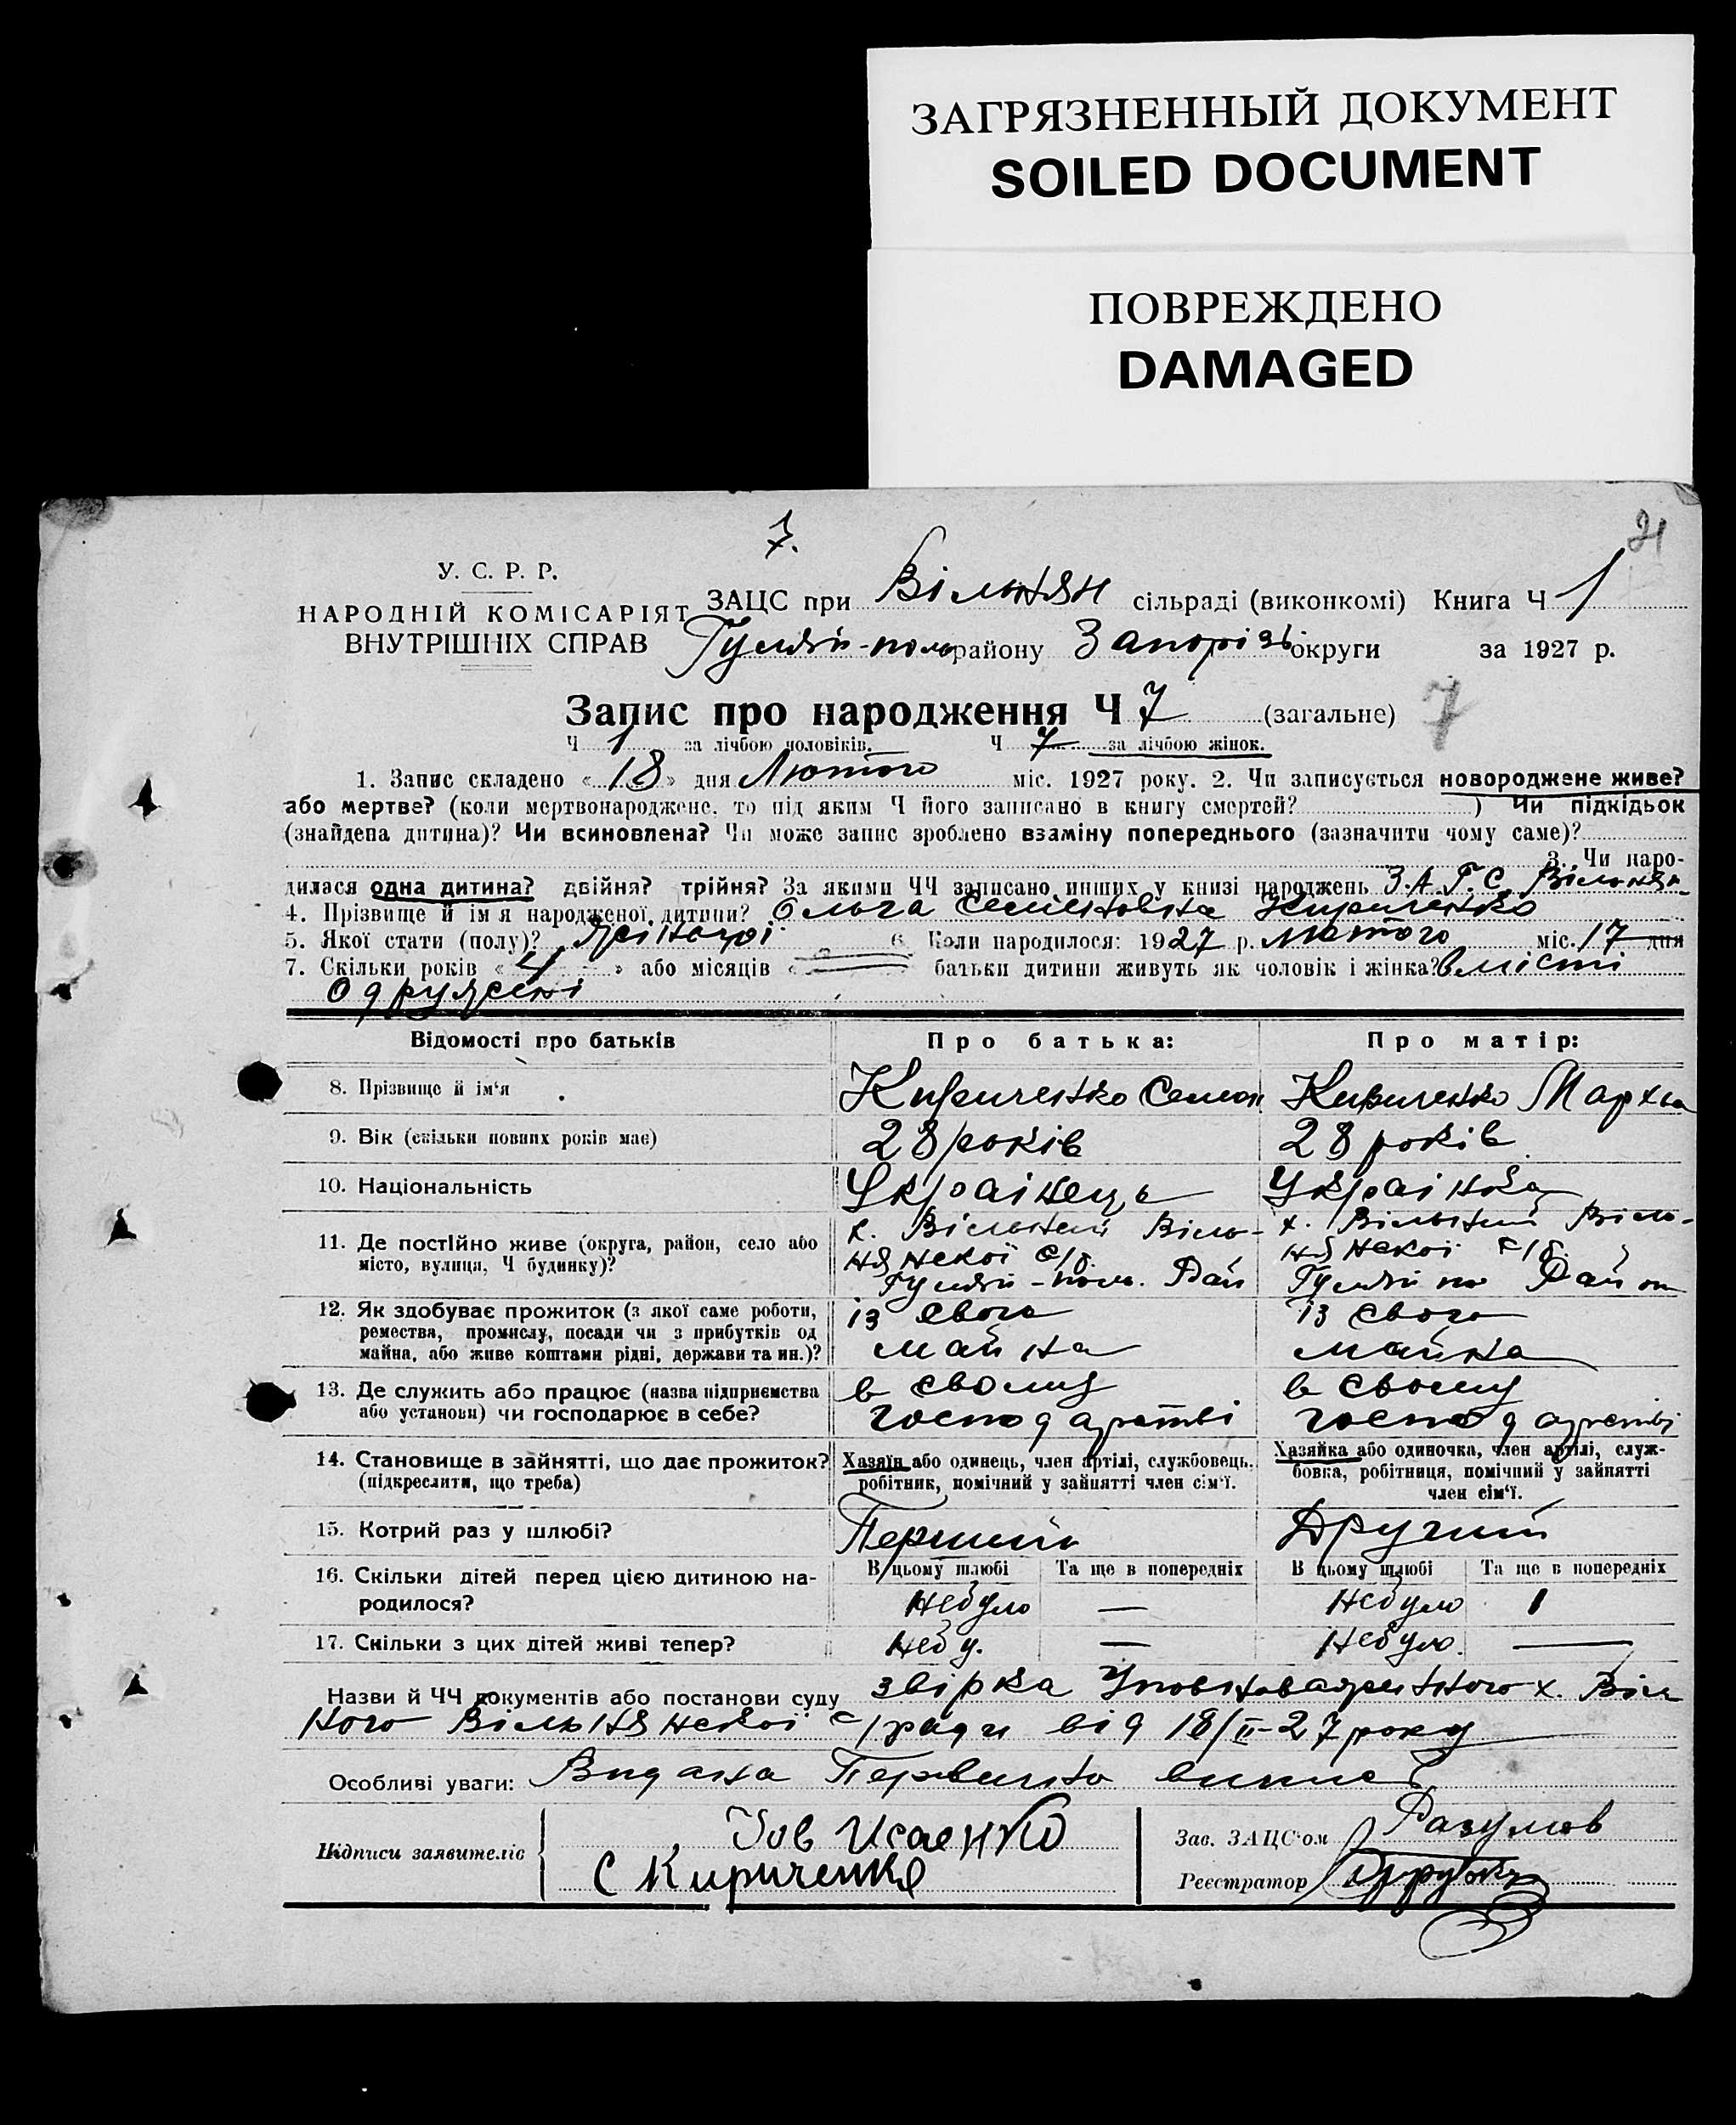 ЗАГРЯЗНЕННЫЙ ДОКУМЕНТ
SOILED DOCUMENT
ПОВРЕЖДЕНО
DAMAGED
7.
21
У. С. Р. Р.
НАРОДНІЙ КОМІСАРІЯТ
ВНУТРІШНІХ СПРАВ
ЗАЦС при Вільнян сільраді (виконкомі) Книга Ч 1
Гуляй-поль району Запорізь округи за 1927 р.
Запис про народження Ч 7 (загальне) 7
Ч 1 за лічбою чоловіків. Ч 7 за лічбою жінок.
1. Запис складено «18» дня Лютого міс. 1927 року. 2. Чи записується новороджене живе?
або мертве? (коли мертвонароджене, то під яким Ч його записано в книгу смертей? ) Чи підкідьок
(знайдена дитина)? Чи всиновлена? Чи може запис зроблено взаміну попереднього (зазначити чому саме)?
3. Чи наро-
дилася одна дитина? двійня? трійня? За якими ЧЧ записано инших у книзі народжень З.А.Г.С. Вільнян
4. Прізвище й імя народженої дитини? Ольга Семеновна Кириченко
5. Якої стати (полу)? Жіночої 6. Коли народилося: 1927 р. Лютого міс. 17 дня
7. Скільки років «4» або місяців « батьки дитини живуть як чоловік і жінка? вмісті
одружені
Відомості про батьків Про батька: Про матір:
8. Прізвище й ім‘я Кириченко Семен Кириченко Мархва
9. Вік (скільки повних років має) 28 років 28 років
10. Національність Українець Українка
11. Де постійно живе (округа, район, село або
місто, вулиця, Ч будинку)?
х. Вільний Віль-
нянської с/р.
Гуляй-поль. Рай
х. Вільний Віль-
нянської с/р.
Гуляй по Район
12. Як здобуває прожиток (з якої саме роботи,
ремества, промислу, посади чи з прибутків од
майна, або живе коштами рідні, держави та ин.)?
із свого
майна
із свого
майна
13. Де служить або працює (назва підприємства
або установи) чи господарює в себе?
в свому
господарстві
в своему
господарстві
14. Становище в зайнятті, що дає прожиток?
(підкреслити, що треба)
Хазяїн або одинець, член артілі, службовець,
робітник, помічний у зайнятті член сім‘ї.
Хазяйка або одиночка, член артілі, служ-
бовка, робітниця, помічний у зайнятті
член сім‘ї.
15. Котрий раз у шлюбі? Перший Другий
16. Скільки дітей перед цією дитиною на-
родилося?
В цьому шлюбі Та ще в попередніх В цьому шлюбі Та ще в попередніх
Небуло — Небуло 1
17. Скільки з цих дітей живі тепер? Небу. — Небуло. —
Назви й ЧЧ документів або постанови суду звірка Уповноваженного х. Віль
ного Вільнянської с/ради від 18/II-27 року
Особливі уваги: Видана Первична випись
Підписи заявителів
Исаенко
С Кириченко
Зав. ЗАЦС‘ом Разумов
Реєстратор